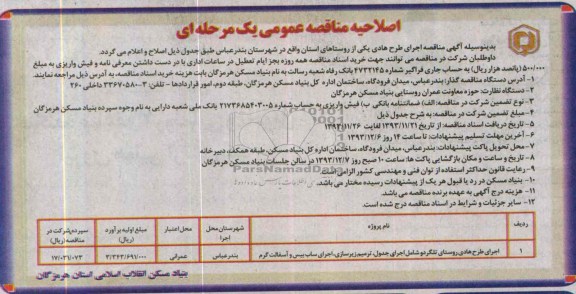 اصلاحیه مناقصه عمومی یک مرحله ای
بدینوسیله آگهی مناقصه اجرای طرح هادی یکی از روستاهای استان واقع در شهرستان بندرعباس طبق جدول ذیل اصلاح و اعلام می گردد.
داوطلبان شرکت در مناقصه می توانند جهت خرید اسناد مناقصه همه روزه بجز ایام تعطیل در ساعات اداری با در دست داشتن معرفی نامه و فیش واریزی به مبلغ
۵۰۰/۰۰۰ (پانصد هزار ریال) به حساب جاری فراگیر شماره ۴۷۳۳۱۴۵ بانک رفاه شعبه رسالت به نام بنیاد مسکن هرمزگان بابت هزینه خرید اسناد مناقصه، به آدرس ذیل مراجعه نمایند.
۱- آدرس دستگاه مناقصه گذار: بندرعباس، میدان فرودگاه، ساختمان اداره کل بنیاد مسکن هرمزگان، طبقه دوم، امور قراردادها - تلفن ۳-۳۳۶۷۰۵۸۰ داخلی ۲۶۰
۲- دستگاه نظارت: حوزه معاونت عمران روستایی بنیاد مسکن هرمزگان
۳- نوع تضمین شرکت در مناقصه: الف) ضمانتنامه بانکی ب) فیش واریزی به حساب شماره ۲۱۷۳۶۸۵۴۰۳۰۰۵ بانک ملی شعبه دارایی به نام وجوه سپرده بنیاد مسکن هرمزگان
۴- مبلغ تضمین شرکت در مناقصه: به شرح جدول ذیل
۵- تاریخ دریافت اسناد مناقصه: از تاریخ ۱۳۹۳/۱۱/۲۱ لغایت ۱۳۹۳/۱۱/۲۶
۶- آخرین مهلت تسلیم پیشنهادات: تا ساعت ۱۴ روز ۱۳۹۳/۱۲/۶
۷- محل تحویل پاکت پیشنهادات: بندرعباس، میدان فرودگاه، ساختمان اداره کل بنیاد مسکن، طبقه همکف، دبیرخانه
۸- تاریخ و ساعت و مکان بازگشایی پاکت ها: ساعت ۱۰ صبح روز ۱۳۹۳/۱۲/۷ در سالن جلسات بنیاد مسکن هرمزگان
۹- رعایت قانون حداکثر استفاده از توان فنی و مهندسی کشور الزامی است.
۱۰- بنیاد مسکن در رد یا قبول هر یک از پیشنهادات رسیده مختار می باشد.
۱۱- هزینه درج آگهی به عهده برنده مناقصه می باشد.
۱۲- سایر جزئیات و شرایط در اسناد مناقصه درج شده است.
ردیف نام پروژه شهرستان محل اجرا محل اعتبار مبلغ اولیه برآورد (ریال) سپرده شرکت در مناقصه (ریال)
۱ اجرای طرح هادی روستای تلگردو شامل اجرای جدول، ترمیم زیرسازی، اجرای ساب بیس و آسفالت گرم بندرعباس عمرانی ۳/۳۶۳/۶۹۱/۰۰۰ ۱۷/۰۲۱/۰۷۳
بنیاد مسکن انقلاب اسلامی استان هرمزگان
ParsNamadData